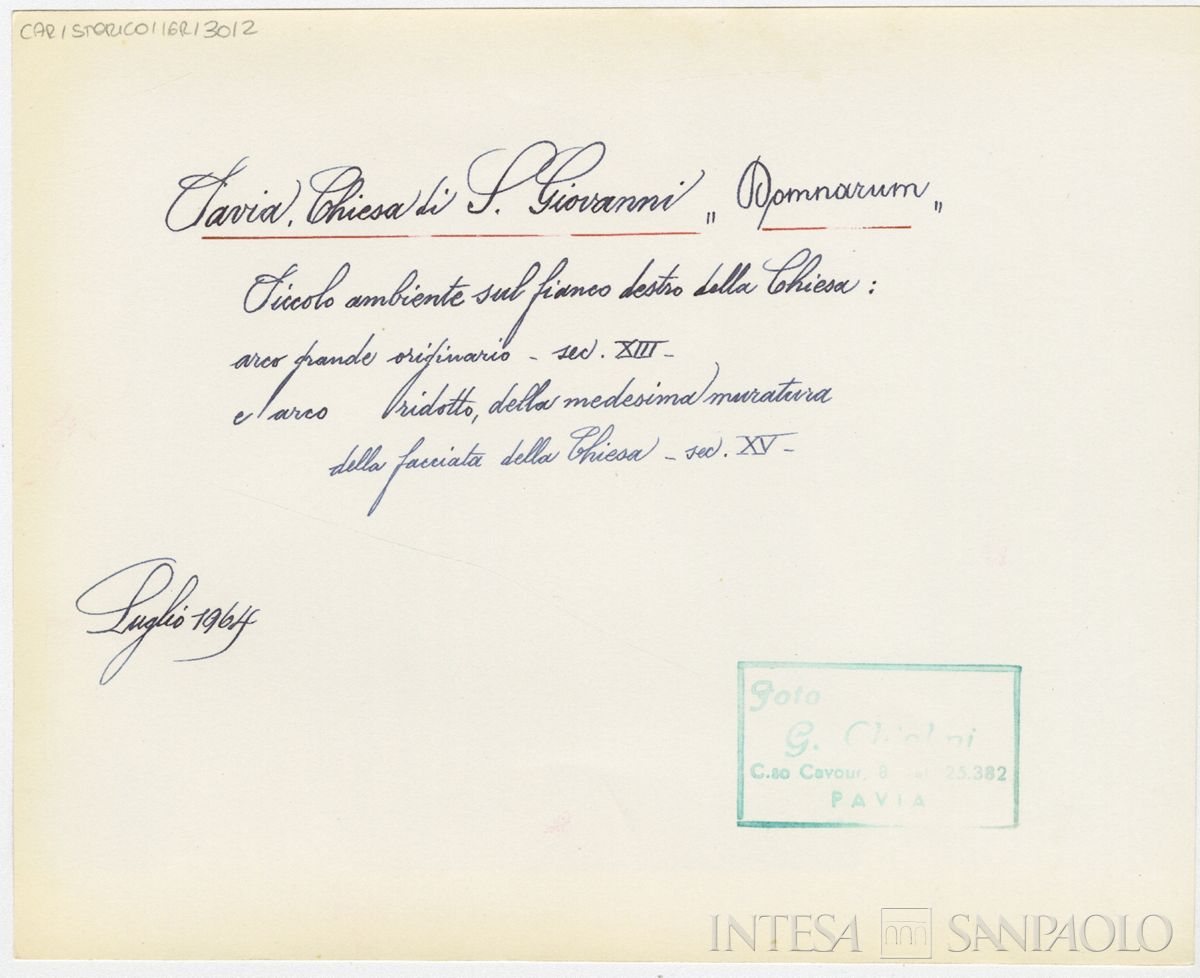 CAR/STORICO/16R/30/2
Pavia. Chiesa di S. Giovanni „ Domnarum „
Piccolo ambiente sul fianco destro della Chiesa :
arco grande originario - sec. XIII -
e arco ridotto, della medesima muratura
della facciata della Chiesa - sec. XV -
Luglio 1964
Foto
G.
C.so Cavour, 8 25.382
PAVIA
INTESA SANPAOLO